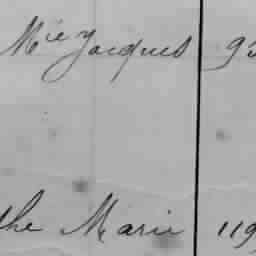 Mie Jacques 93
the Marie 119